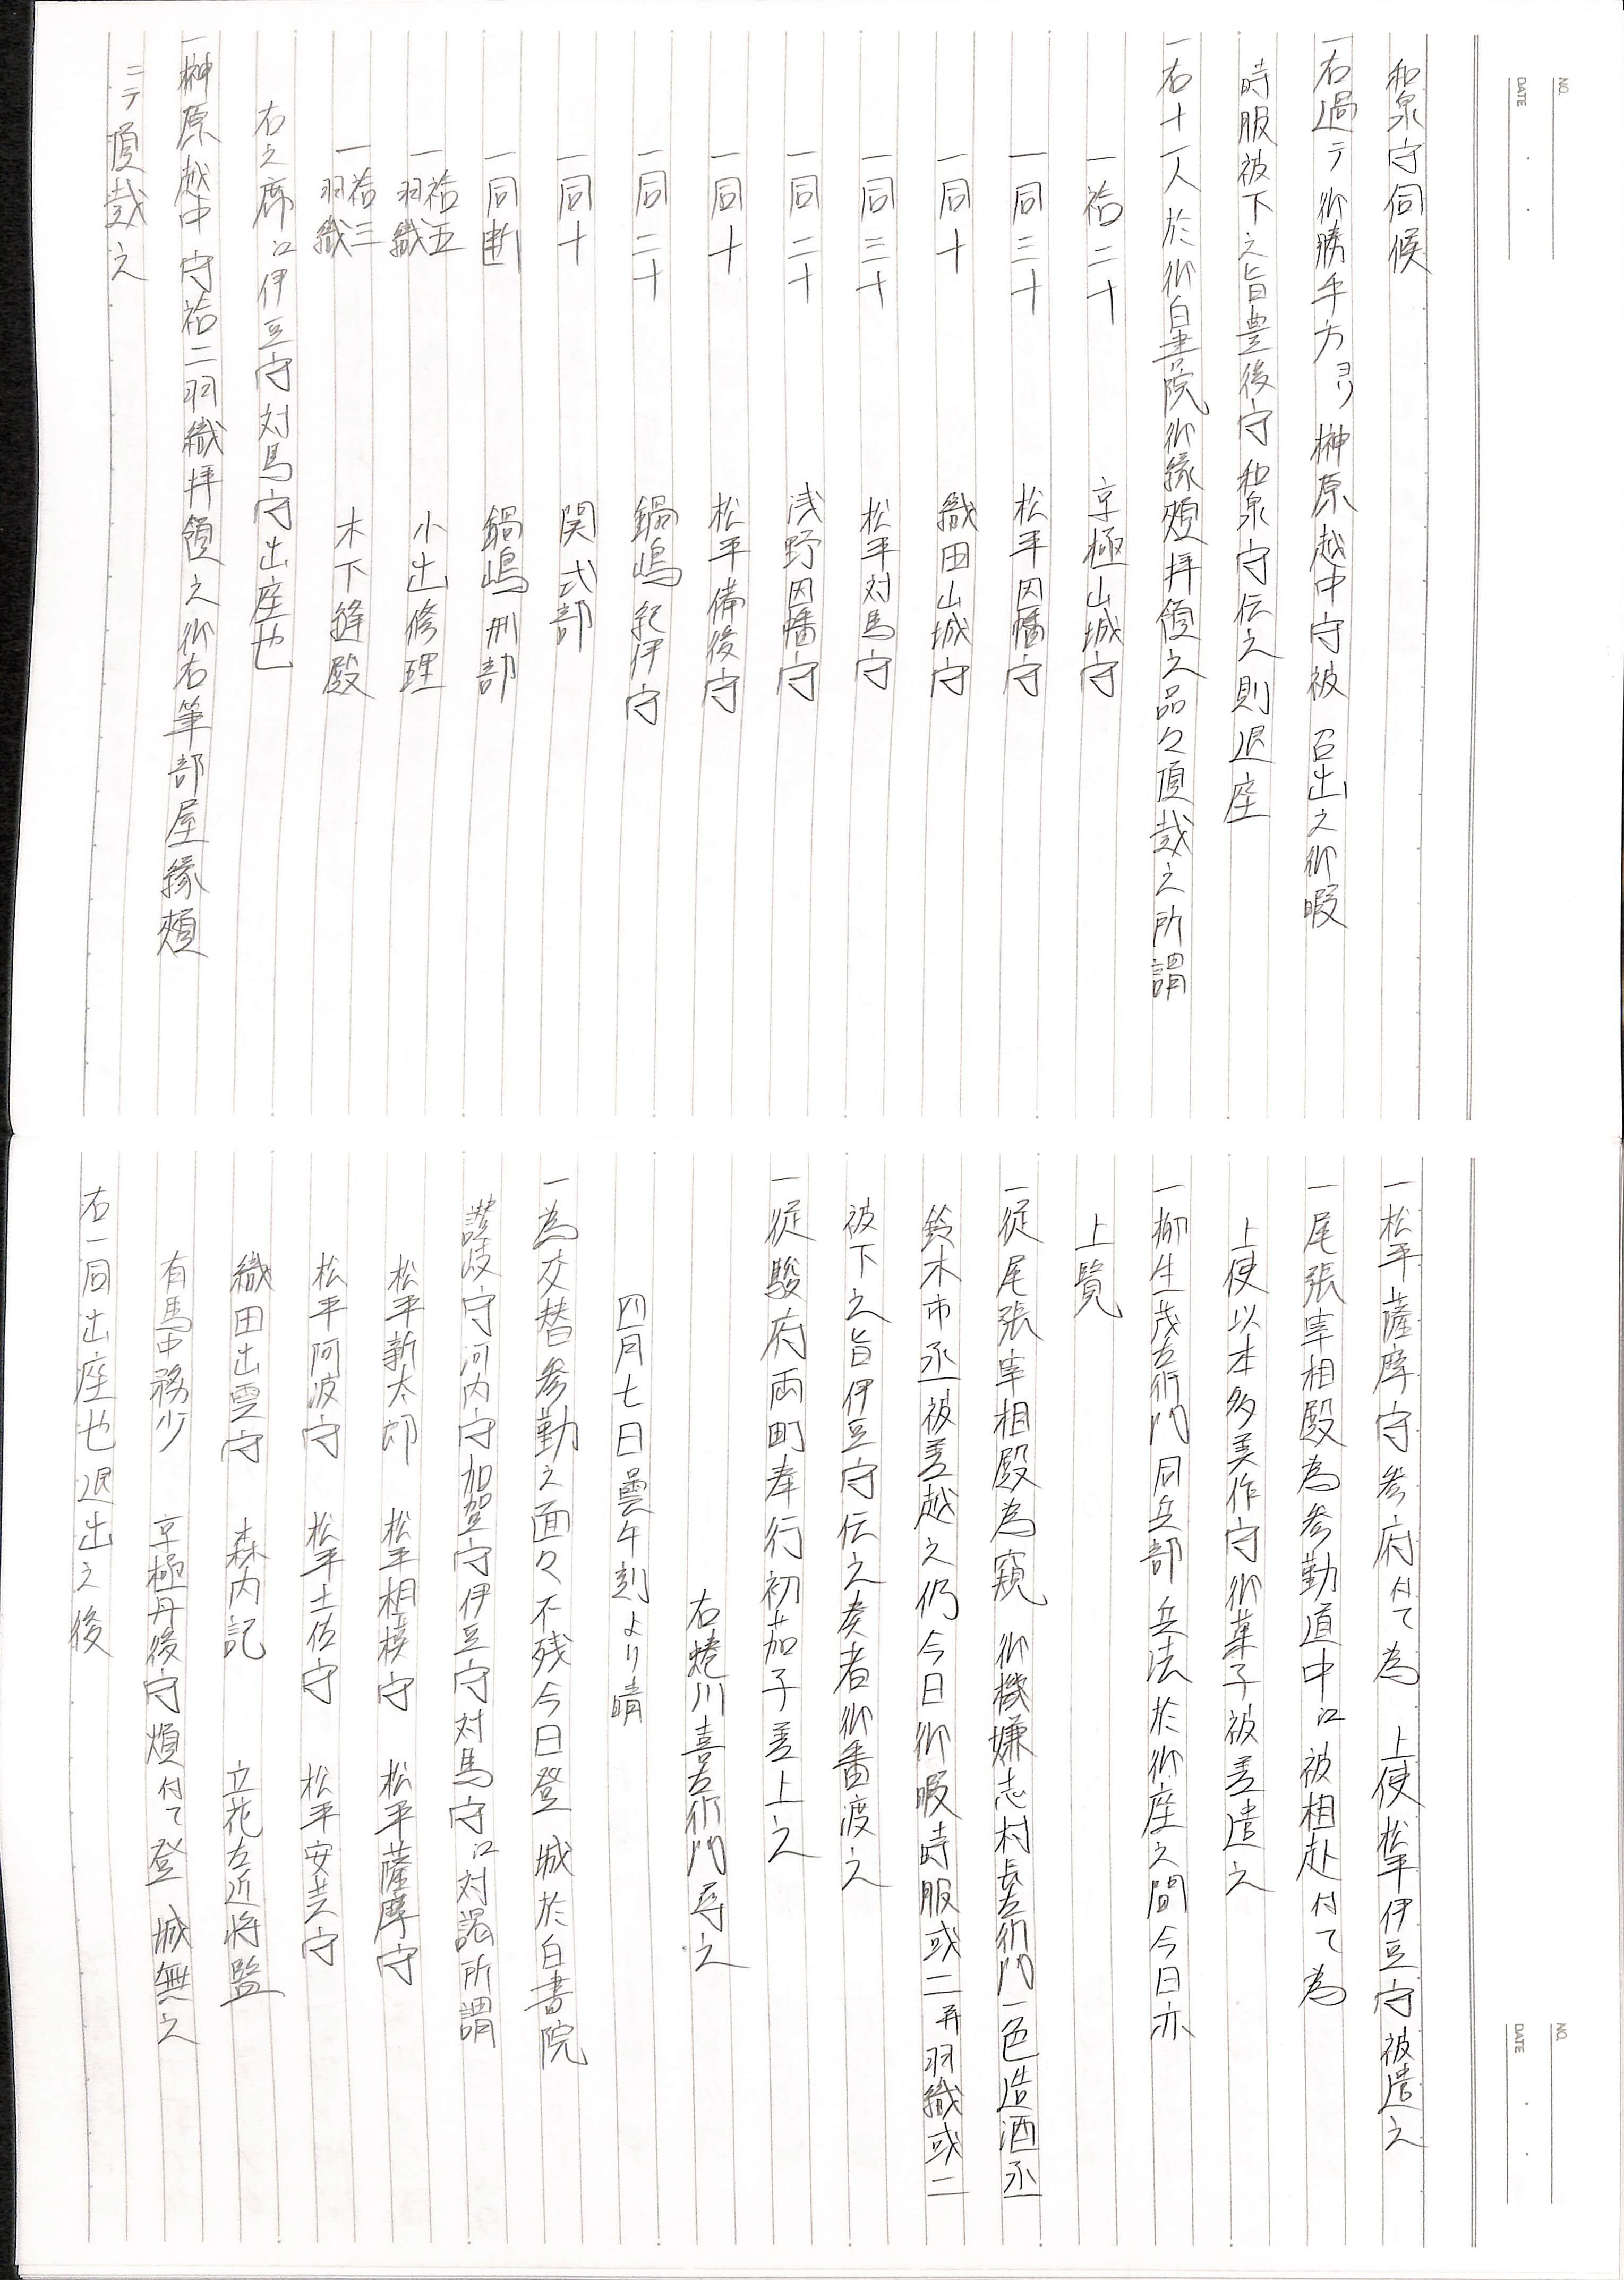 NO.
DATE
和泉守伺候
一右過テ御勝手方ヨリ 榊原越中守被 召出之御暇
時服被下之旨豊後守和泉守伝之則退座
一右十一人於御白書院御縁頬拝領之品々頂戴之所謂
一袷二十 京極山城守
一同三十 松平因幡守
一同十 織田山城守
一同三十 松平対馬守
一同二十 浅野因幡守
一同十 松平備後守
一同二十 鍋嶋紀伊守
一同十 関式部
一同断 鍋嶋刑部
一袷五羽織 小出修理
一袷三羽織 木下縫殿
右之席江伊豆守対馬守出座也
一榊原越中守袷二羽織拝領之御右筆部屋縁頬
ニテ頂戴之
NO.
DATE
一松平薩摩守参府付て為 上使松平伊豆守被遣之
一尾張宰相殿為参勤道中江被相赴付て為
上使以本多美作守御菓子被差遣之
一柳生茂左衛門同兵部兵法於御座之間今日亦
上覧
一従尾張宰相殿為窺 御機嫌志村長左衛門一色造酒丞
鈴木市丞被差越之仍今日御暇時服或二再羽織或二
被下之旨伊豆守伝之奏者御番渡之
一従駿府両町奉行初茄子差上之
右蜷川喜左衛門尋之
四月七日曇午刻より晴
一為交替参勤之面々不残今日登 城於白書院
讃岐守河内守加賀守伊豆守対馬守江対謁所謂
松平新太郎 松平相模守 松平薩摩守
松平阿波守 松平土佐守 松平安芸守
織田出雲守 森内記 立花左近将監
有馬中務少 京極丹後守煩付て登 城無之
右一同出座也退出之後